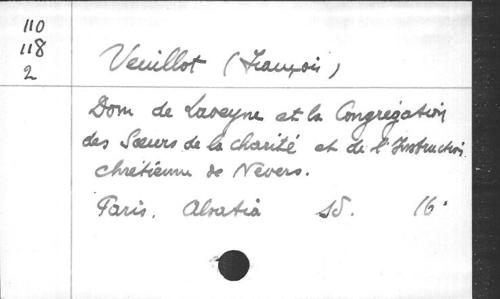 110
118
2
Veuillot (François)
Dom de Laveyne et la Congrégation
des Sœurs de la Charité et de l'Instruction
chrétienne de Nevers.
Paris. Alsatia sd. 16°